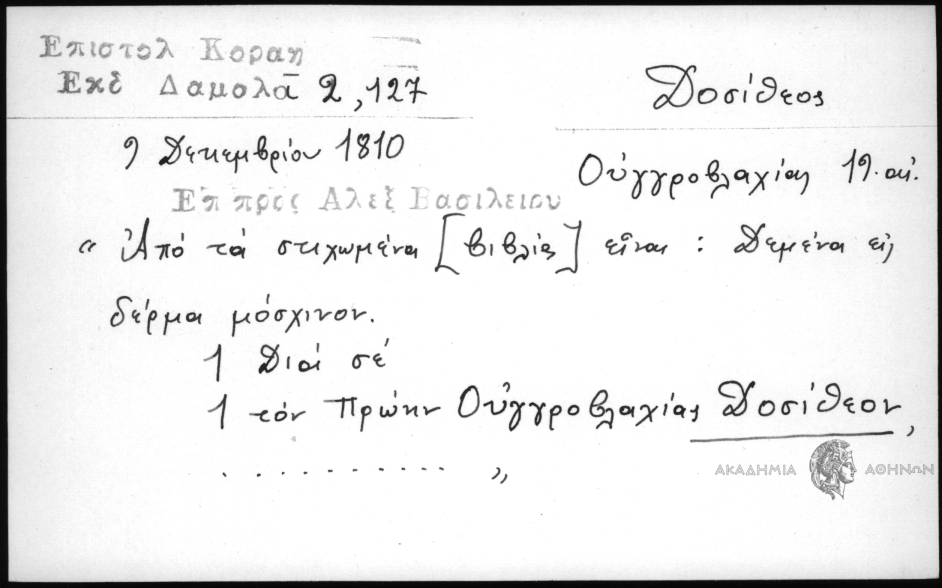 Επιστολ Κοραη
Εκδ Δαμαλᾶ 2, 127
Δοσίθεος
9 Δεκεμβρίου 1810
Οὑγγροβλαχίας 19. αἰ.
Επ προς Αλεξ Βασιλειου
" Ἀπό τά στιχωμένα [βιβλία] εἶναι : Δεμένα εἰς
δέρμα μόσχινον.
1 Διά σέ
1 τόν Πρώην Οὑγγροβλαχίας Δοσίθεον,
. . . . . . . . . . "
ΑΚΑΔΗΜΙΑ ΑΘΗΝΩΝ